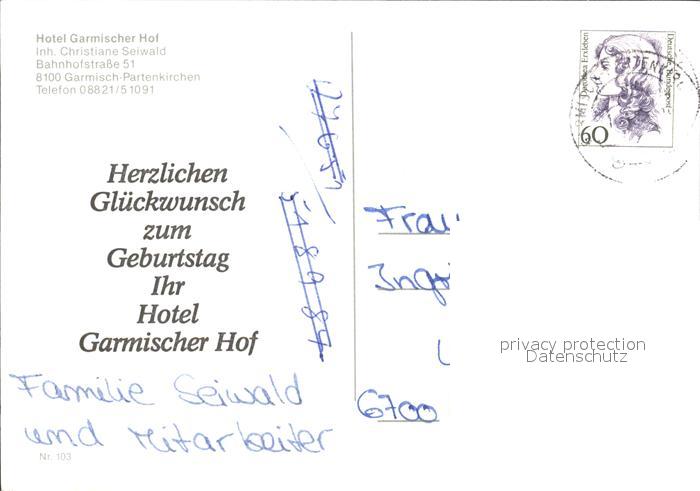 Hotel Garmischer Hof
Inh. Christiane Seiwald
Bahnhofstraße 51
8100 Garmisch-Partenkirchen
Telefon 08821/51091
Dorothea Erxleben
Deutsche Bundespost
60
Herzlichen
Glückwunsch
zum
Geburtstag
Ihr
Hotel
Garmischer Hof
Familie Seiwald
und Mitarbeiter
Nr. 103
Frau
Ingri
6700
privacy protection
Datenschutz